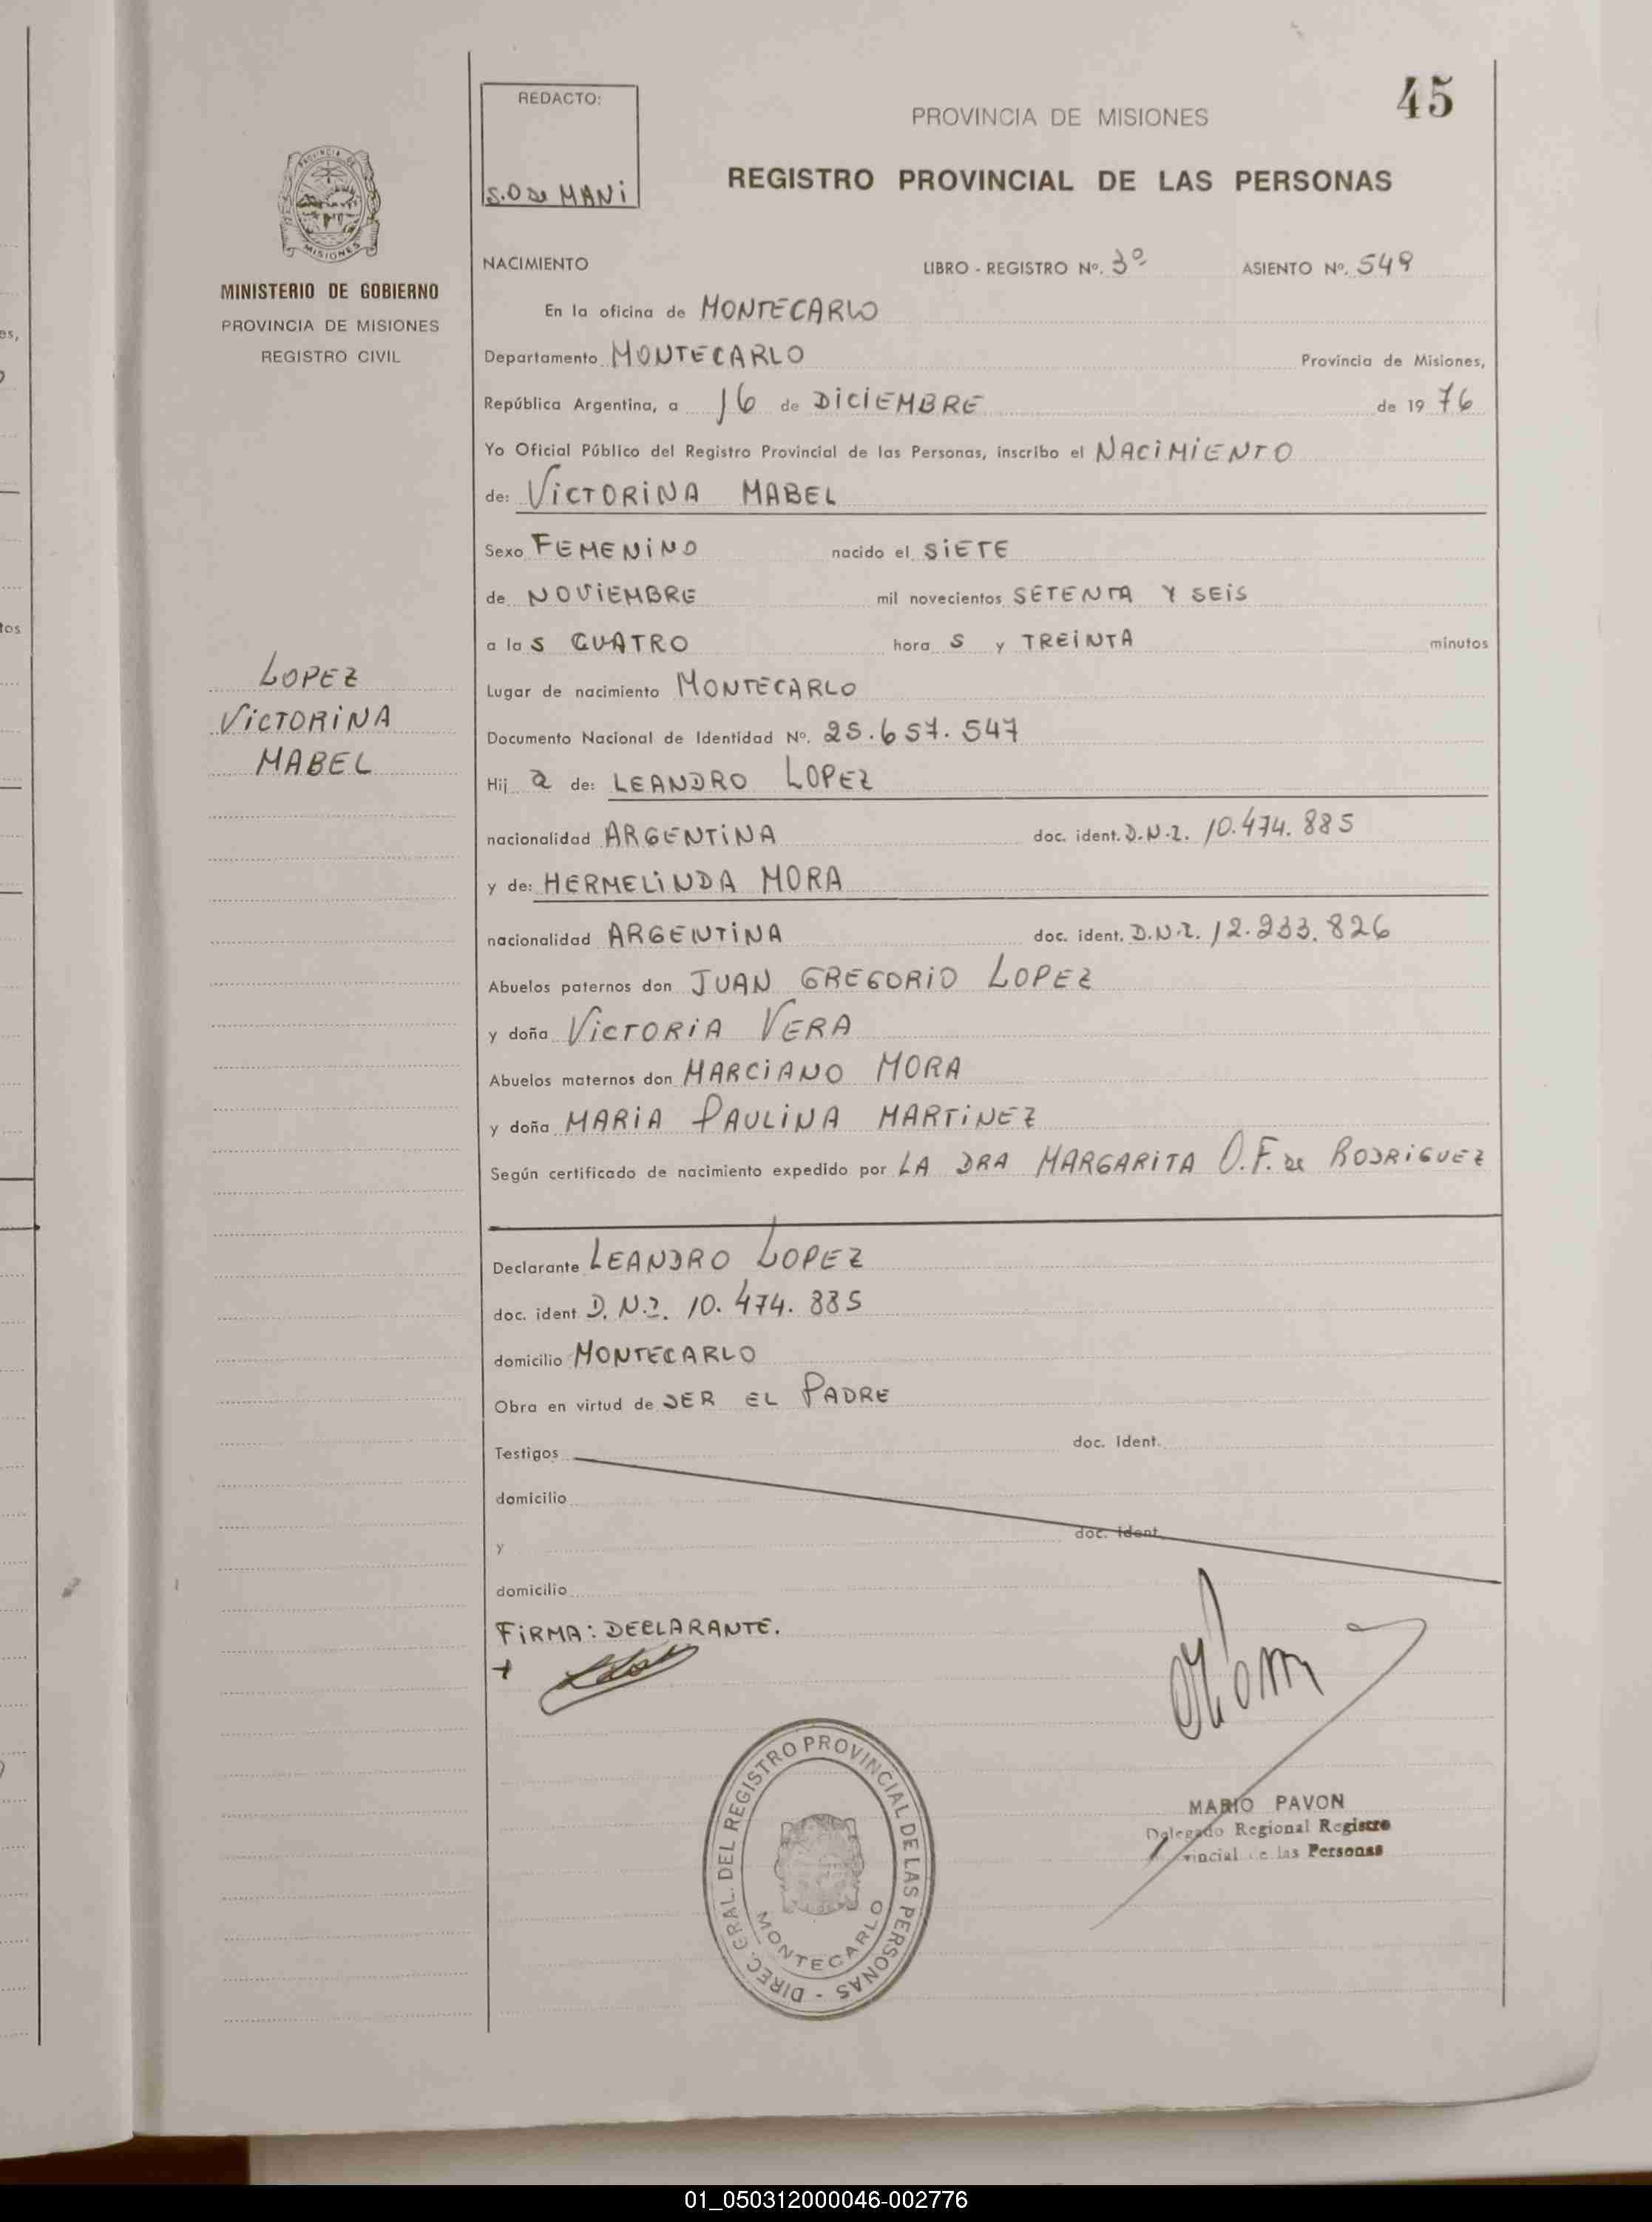 45
REDACTO:
S.O de MANI
PROVINCIA DE MISIONES
REGISTRO PROVINCIAL DE LAS PERSONAS
PROVINCIA DE
MISIONES
MINISTERIO DE GOBIERNO
PROVINCIA DE MISIONES
REGISTRO CIVIL
LOPEZ
VICTORINA
MABEL
NACIMIENTO LIBRO - REGISTRO Nº. 3º ASIENTO Nº. 549
En la oficina de MONTECARLO
Departamento MONTECARLO Provincia de Misiones,
República Argentina, a 16 de DICIEMBRE de 19 76
Yo Oficial Público del Registro Provincial de las Personas, inscribo el NACIMIENTO
de: VICTORINA MABEL
Sexo FEMENINO nacido el SIETE
de NOVIEMBRE mil novecientos SETENTA Y SEIS
a la S CUATRO hora S y TREINTA minutos
Lugar de nacimiento MONTECARLO
Documento Nacional de Identidad Nº. 25.657.547
Hij a de: LEANDRO LOPEZ
nacionalidad ARGENTINA doc. ident. D.N.I. 10.474.885
y de: HERMELINDA MORA
nacionalidad ARGENTINA doc. ident. D.N.I. 12.233.826
Abuelos paternos don JUAN GREGORIO LOPEZ
y doña VICTORIA VERA
Abuelos maternos don MARCIANO MORA
y doña MARIA PAULINA MARTINEZ
Según certificado de nacimiento expedido por LA DRA MARGARITA O.F. de RODRIGUEZ
Declarante LEANDRO LOPEZ
doc. ident D.N.I. 10.474.885
domicilio MONTECARLO
Obra en virtud de SER EL PADRE
Testigos doc. Ident.
domicilio
y doc. Ident.
domicilio
FIRMA: DECLARANTE.
+
DIREC. GRAL. DEL REGISTRO PROVINCIAL DE LAS PERSONAS -
MONTECARLO
MARIO PAVON
Delegado Regional Registro
vincial de las Personas
01_050312000046-002776